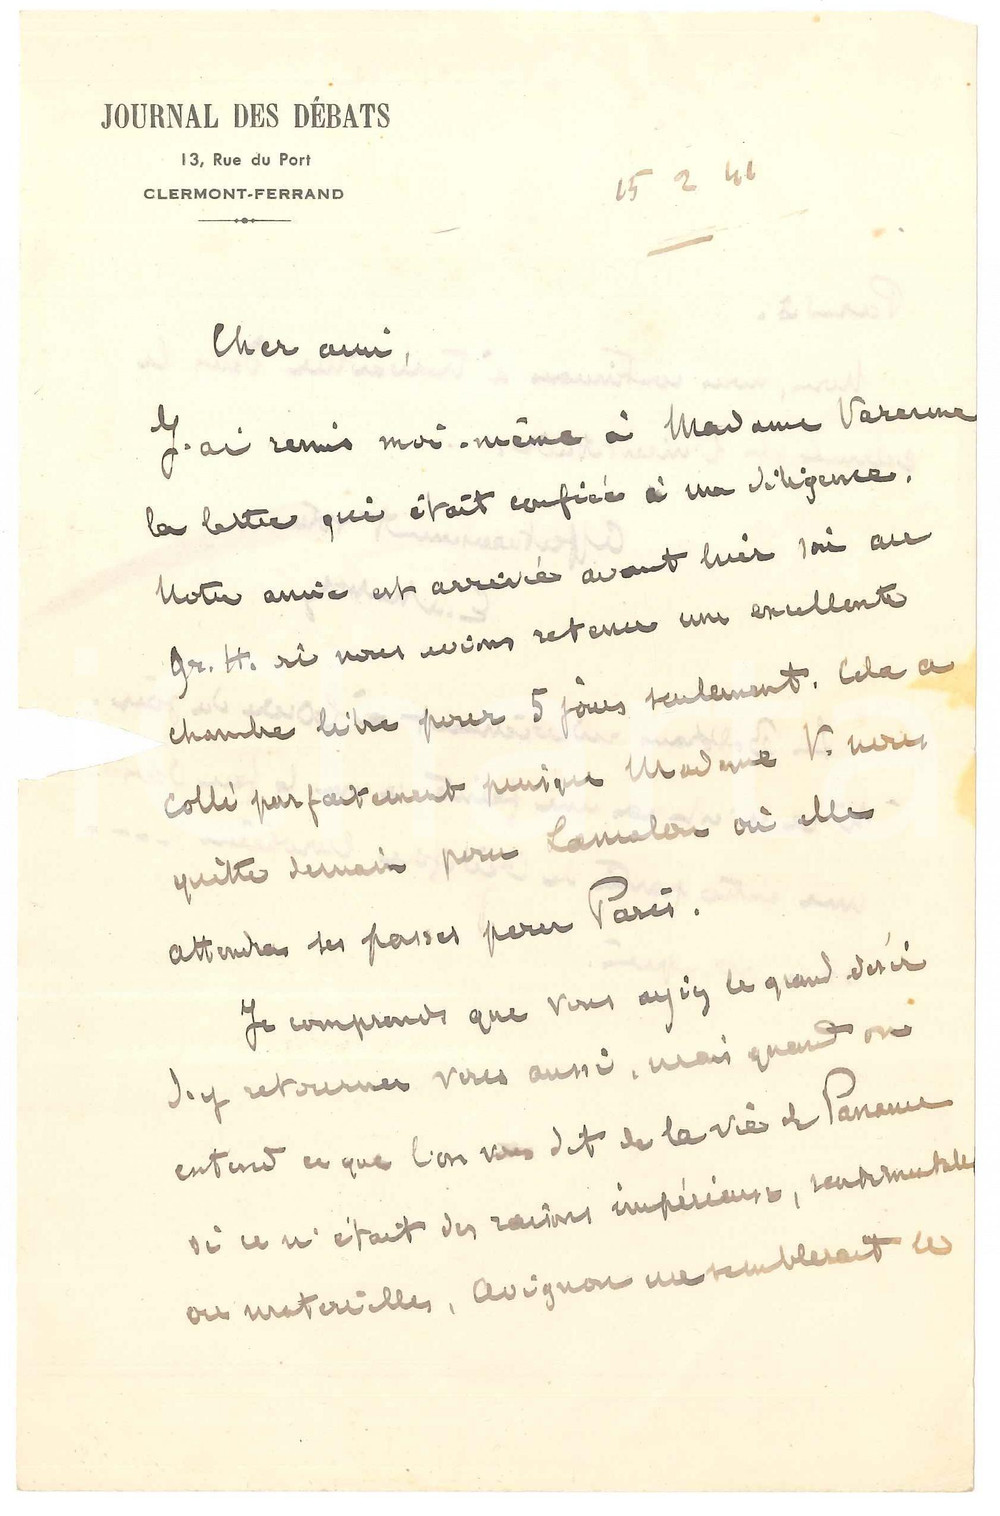 JOURNAL DES DÉBATS
13, Rue du Port
CLERMONT-FERRAND
15 2 41
Cher ami,
J'ai remis moi-même à Madame Varenne
la lettre qui était confiée à ma diligence.
Notre amie est arrivée avant hier soir au
Gr. H. où nous avions retenu une excellente
chambre libre pour 5 jours seulement. Cela a
collé parfaitement puisque Madame V. nous
quitte demain pour Lamalou où elle
attendra ses passes pour Paris.
Je comprends que vous ayiez le grand désir
d'y retourner vous aussi, mais quand on
entend ce que l'on vous dit de la vie de Paname
si ce n'était des raisons impérieuses, sentimentales
ou matérielles, Avignon me semblerait le